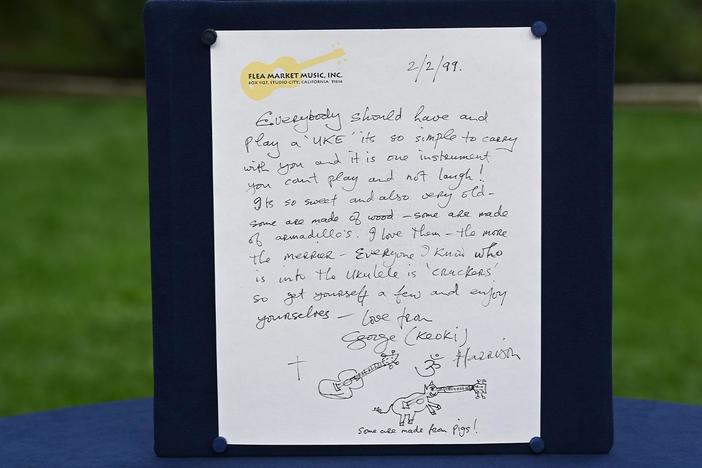 FLEA MARKET MUSIC, INC.
BOX 1127, STUDIO CITY, CALIFORNIA 91614
2/2/99.
Everybody should have and
play a 'UKE' its so simple to carry
with you and it is one instrument
you cant play and not laugh!
Its so sweet and also very old -
some are made of wood - some are made
of armadillo's. I love them - the more
the merrier - Everyone I know who
is into the Ukulele is 'crackers'
so get yourself a few and enjoy
yourselves - Love from
George (Keoki)
ॐ Harrison
Some are made from pigs!